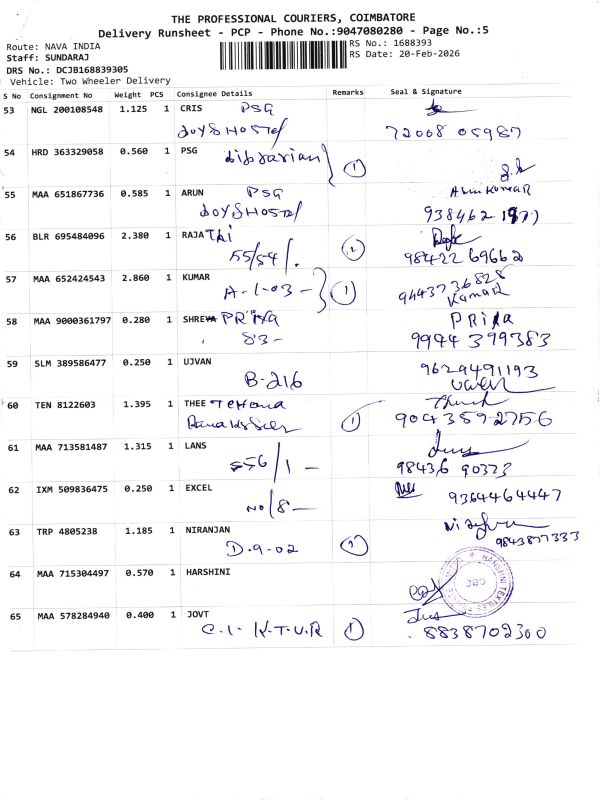 THE PROFESSIONAL COURIERS, COIMBATORE
Delivery Runsheet - PCP - Phone No.:9047080280 - Page No.:5
Route: NAVA INDIA
RS No.: 1688393
Staff: SUNDARAJ
RS Date: 20-Feb-2026
DRS No.: DCJB168839305
Vehicle: Two Wheeler Delivery
S No Consignment No Weight PCS Consignee Details Remarks Seal & Signature
53 NGL 200108548 1.125 1 CRIS PSG
BOYS HOSTEL 72008 05987
54 HRD 363329058 0.560 1 PSG
Librarian 1
55 MAA 651867736 0.585 1 ARUN PSG Arun Kumar
BOYS HOSTEL 938462
56 BLR 695484096 2.380 1 RAJA THI 2
55/54 98422 69662
57 MAA 652424543 2.860 1 KUMAR 9443736828
A-1-03 1 Kumar
58 MAA 9000361797 0.280 1 SHREYA PRIYA PRIYA
83- 9944 399383
59 SLM 389586477 0.250 1 UJVAN 9629491193
B-216
60 TEN 8122603 1.395 1 THEE 1
9043592756
61 MAA 713581487 1.315 1 LANS
556/1 - 98436 90373
62 IXM 509836475 0.250 1 EXCEL
No/8- 9364464447
63 TRP 4805238 1.185 1 NIRANJAN
D.9-02 9843877333
64 MAA 715304497 0.570 1 HARSHINI
HARSHNI TEXTILES
CBE
65 MAA 578284940 0.400 1 JOVT
C.I. K.T.V.R 1 8838702300